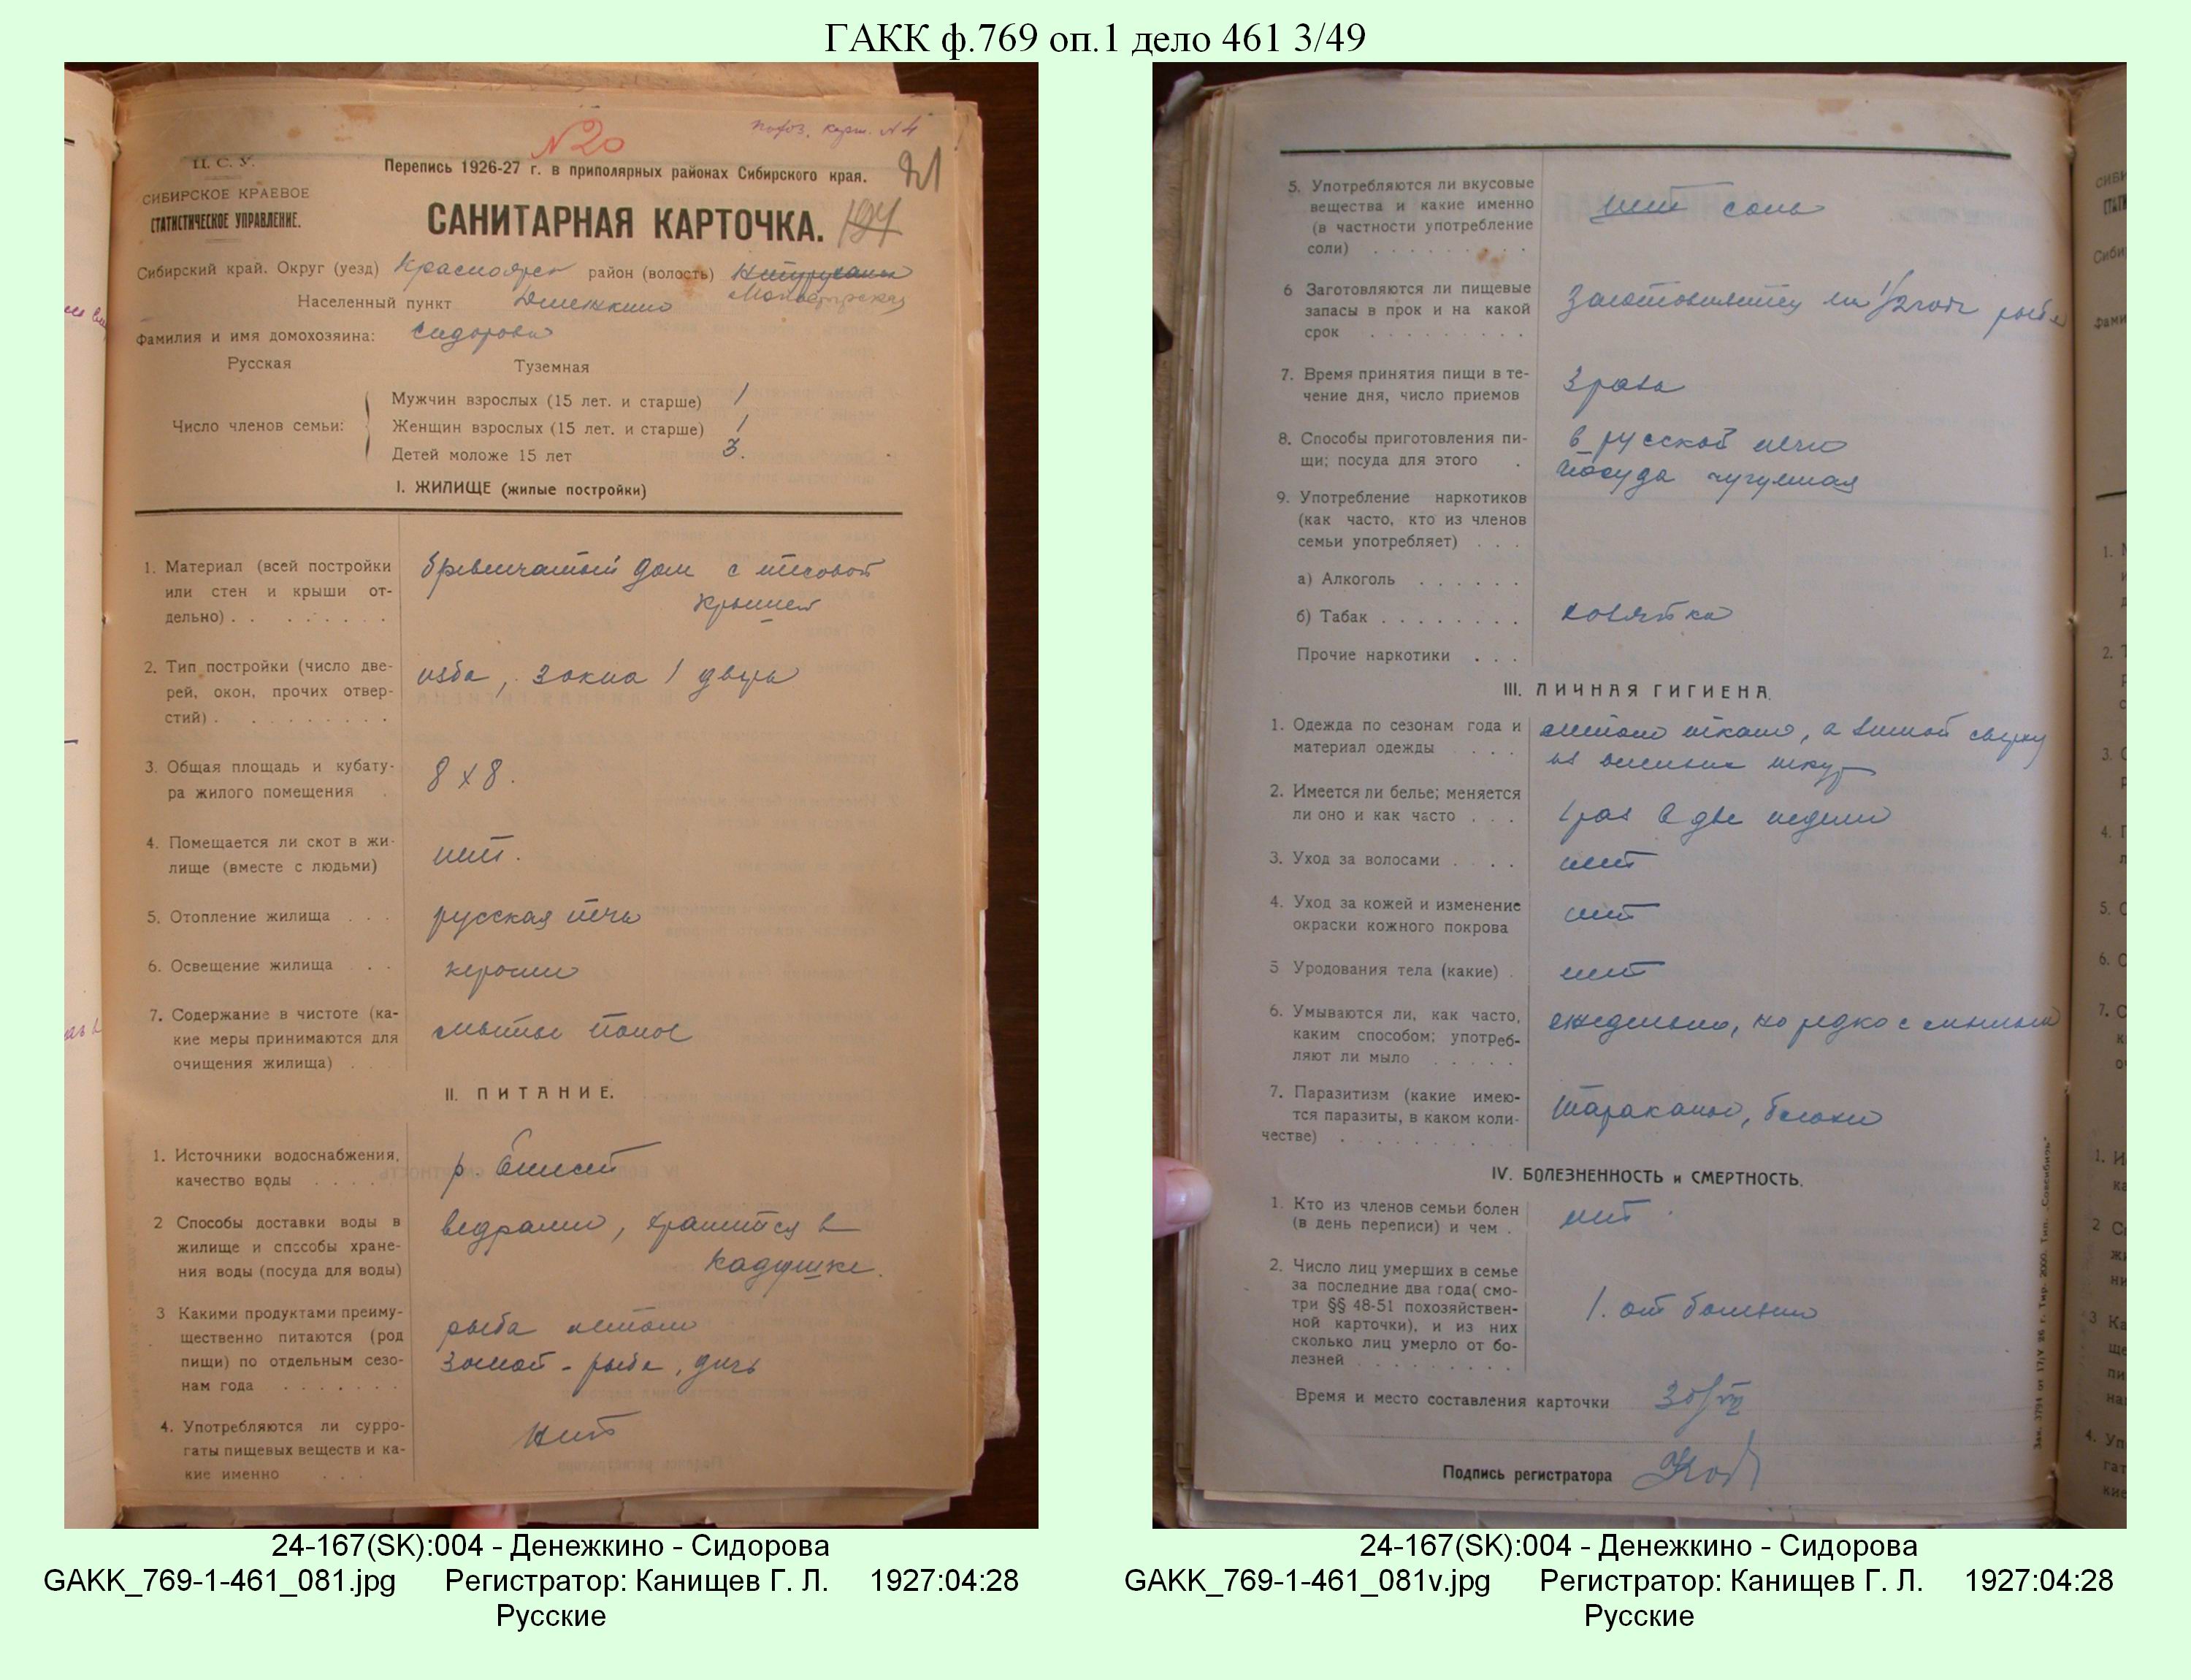 ГАКК ф.769 оп.1 дело 461 3/49
N 20
похоз. карт. N 4
Ц. С. У.
СИБИРСКОЕ КРАЕВОЕ
СТАТИСТИЧЕСКОЕ УПРАВЛЕНИЕ.
Перепись 1926-27 г. в приполярных районах Сибирского края.
САНИТАРНАЯ КАРТОЧКА.
Сибирский край. Округ (уезд) Красноярск район (волость)
Населенный пункт Денежкино
Фамилия и имя домохозяина: Сидорова
Русская Туземная
Число членов семьи:
Мужчин взрослых (15 лет. и старше) 1
Женщин взрослых (15 лет. и старше) 1
Детей моложе 15 лет 3.
I. ЖИЛИЩЕ (жилые постройки)
1. Материал (всей постройки
или стен и крыши от-
дельно) . . . . . . . .
бревенчатый дом с тесовой
крышей
2. Тип постройки (число две-
рей, окон, прочих отвер-
стий) . . . . . . . . .
изба, 3 окна 1 дверь
3. Общая площадь и кубату-
ра жилого помещения .
8 x 8.
4. Помещается ли скот в жи-
лище (вместе с людьми)
нет.
5. Отопление жилища . . .
русская печь
6. Освещение жилища . .
керосин
7. Содержание в чистоте (ка-
кие меры принимаются для
очищения жилища) . . .
мытье полов
II. ПИТАНИЕ.
1. Источники водоснабжения,
качество воды . . . .
р. Енисей
2 Способы доставки воды в
жилище и способы хране-
ния воды (посуда для воды)
ведрами, хранится в
кадушке.
3 Какими продуктами преиму-
щественно питаются (род
пищи) по отдельным сезо-
нам года . . . . . . .
рыба летом
зимой - рыба, дичь
4. Употребляются ли сурро-
гаты пищевых веществ и ка-
кие именно . . .
нет
5. Употребляются ли вкусовые
вещества и какие именно
(в частности употребление
соли) . . . . . . . . .
нет соль
6 Заготовляются ли пищевые
запасы в прок и на какой
срок . . . . . . . . .
Заготовляется на 1/2 года рыба
7. Время принятия пищи в те-
чение дня, число приемов
3 раза
8. Способы приготовления пи-
щи; посуда для этого .
в русской печи
посуда чугунная
9. Употребление наркотиков
(как часто, кто из членов
семьи употребляет) . . .
а) Алкоголь . . . . . .
б) Табак . . . . . . . .
хозяйка
Прочие наркотики . . .
III. ЛИЧНАЯ ГИГИЕНА.
1. Одежда по сезонам года и
материал одежды . . . .
летом ткань, а зимой сверху
из оленьих шкур
2. Имеется ли белье; меняется
ли оно и как часто . . .
1 раз в две недели
3. Уход за волосами . . . .
нет
4. Уход за кожей и изменение
окраски кожного покрова
нет
5 Уродования тела (какие) .
нет
6. Умываются ли, как часто,
каким способом; употреб-
ляют ли мыло . . . . .
ежедневно, но редко с мылом
7. Паразитизм (какие имею-
тся паразиты, в каком коли-
честве) . . . . . . . . . .
тараканы, блохи
IV. БОЛЕЗНЕННОСТЬ и СМЕРТНОСТЬ.
1. Кто из членов семьи болен
(в день переписи) и чем .
нет
2. Число лиц умерших в семье
за последние два года( смо-
три §§ 48-51 похозяйствен-
ной карточки), и из них
сколько лиц умерло от бо-
лезней . . . . . . . . .
1. от болезни
Время и место составления карточки
Подпись регистратора
24-167(SK):004 - Денежкино - Сидорова
GAKK_769-1-461_081.jpg Регистратор: Канищев Г. Л. 1927:04:28
Русские
24-167(SK):004 - Денежкино - Сидорова
GAKK_769-1-461_081v.jpg Регистратор: Канищев Г. Л. 1927:04:28
Русские